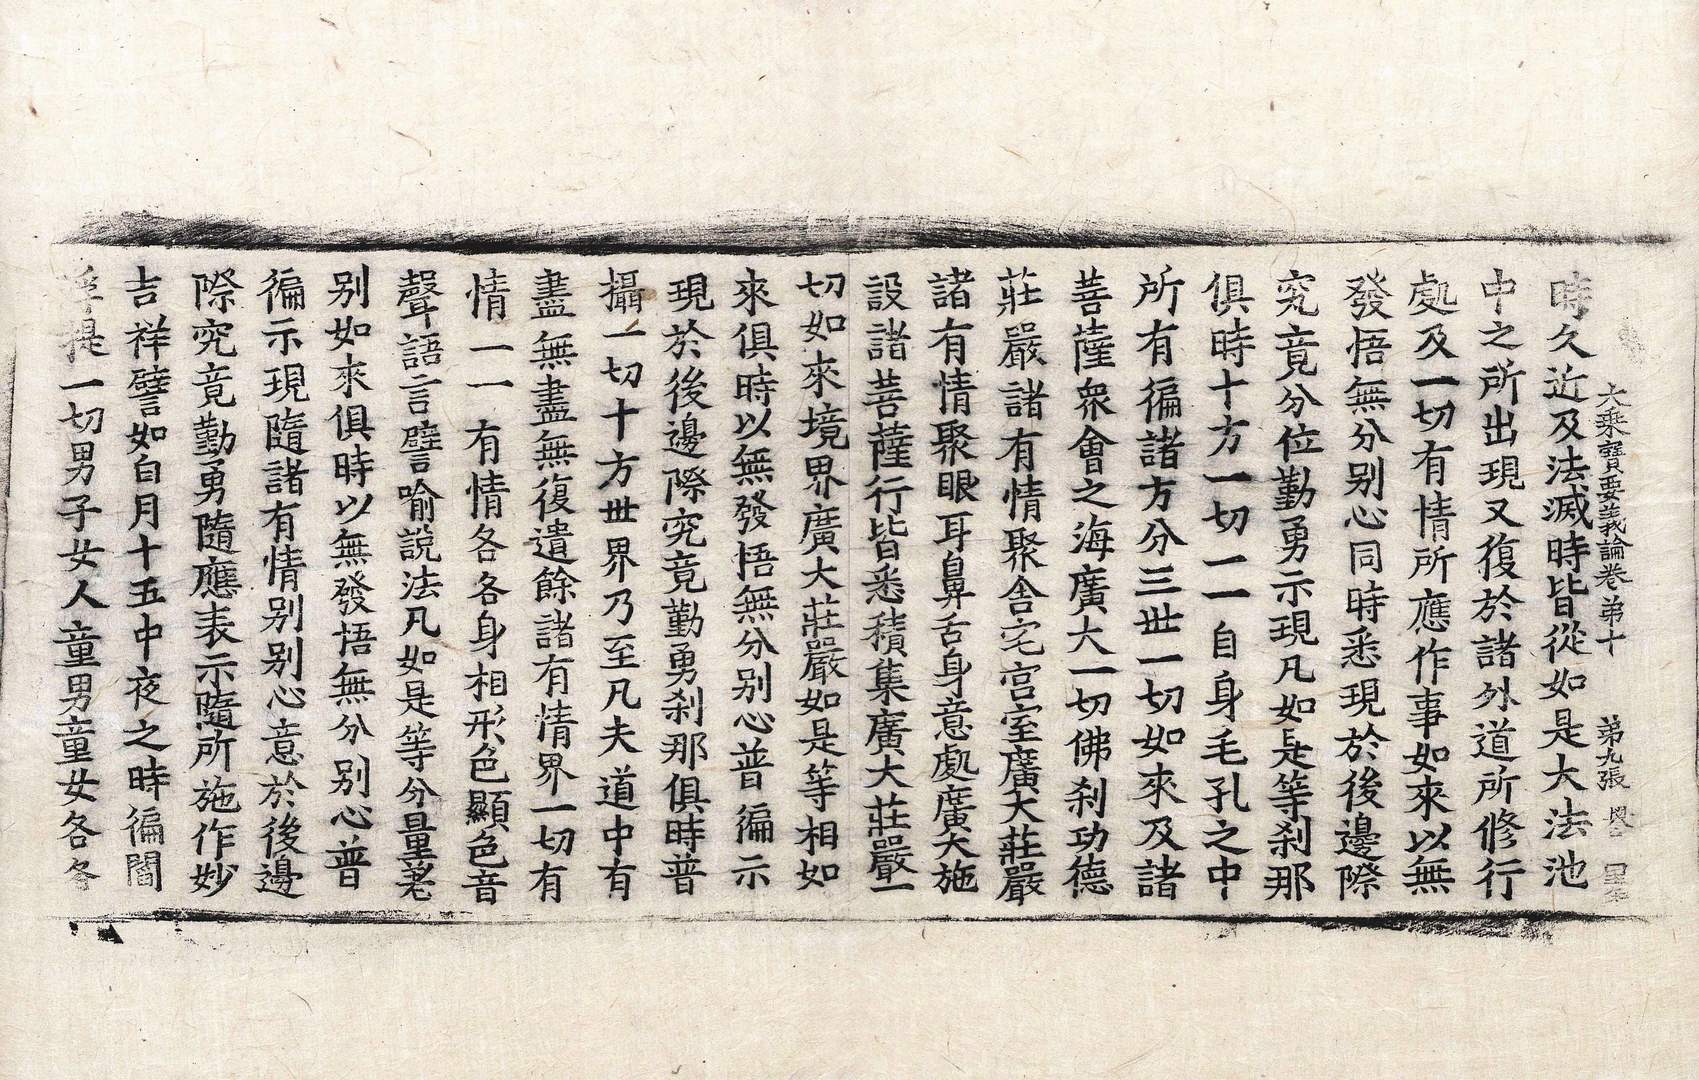 大乘寶要義論卷苐十 苐九張
時久近及法滅時皆從如是大法池
中之所出現又復於諸外道所修行
處及一切有情所應作事如來以無
發悟無分别心同時悉現於後邊際
究竟分位勤勇示現凡如是等刹那
俱時十方一切一一自身毛孔之中
所有徧諸方分三世一切如來及諸
菩薩衆會之海廣大一切佛刹功德
莊嚴諸有情聚舍宅宫室廣大莊嚴
諸有情聚眼耳鼻舌身意處廣大施
設諸菩薩行皆悉積集廣大莊嚴一
切如來境界廣大莊嚴如是等相如
來俱時以無發悟無分别心普徧示
現於後邊際究竟勤勇刹那俱時普
攝一切十方世界乃至凡夫道中有
盡無盡無復遺餘諸有情界一切有
情一一有情各各身相形色顯色音
聲語言譬喻説法凡如是等分量差
别如來俱時以無發悟無分别心普
徧示現隨諸有情别别心意於後邊
際究竟勤勇隨應表示隨所施作妙
吉祥譬如白月十五中夜之時徧閻
浮提一切男子女人童男童女各各